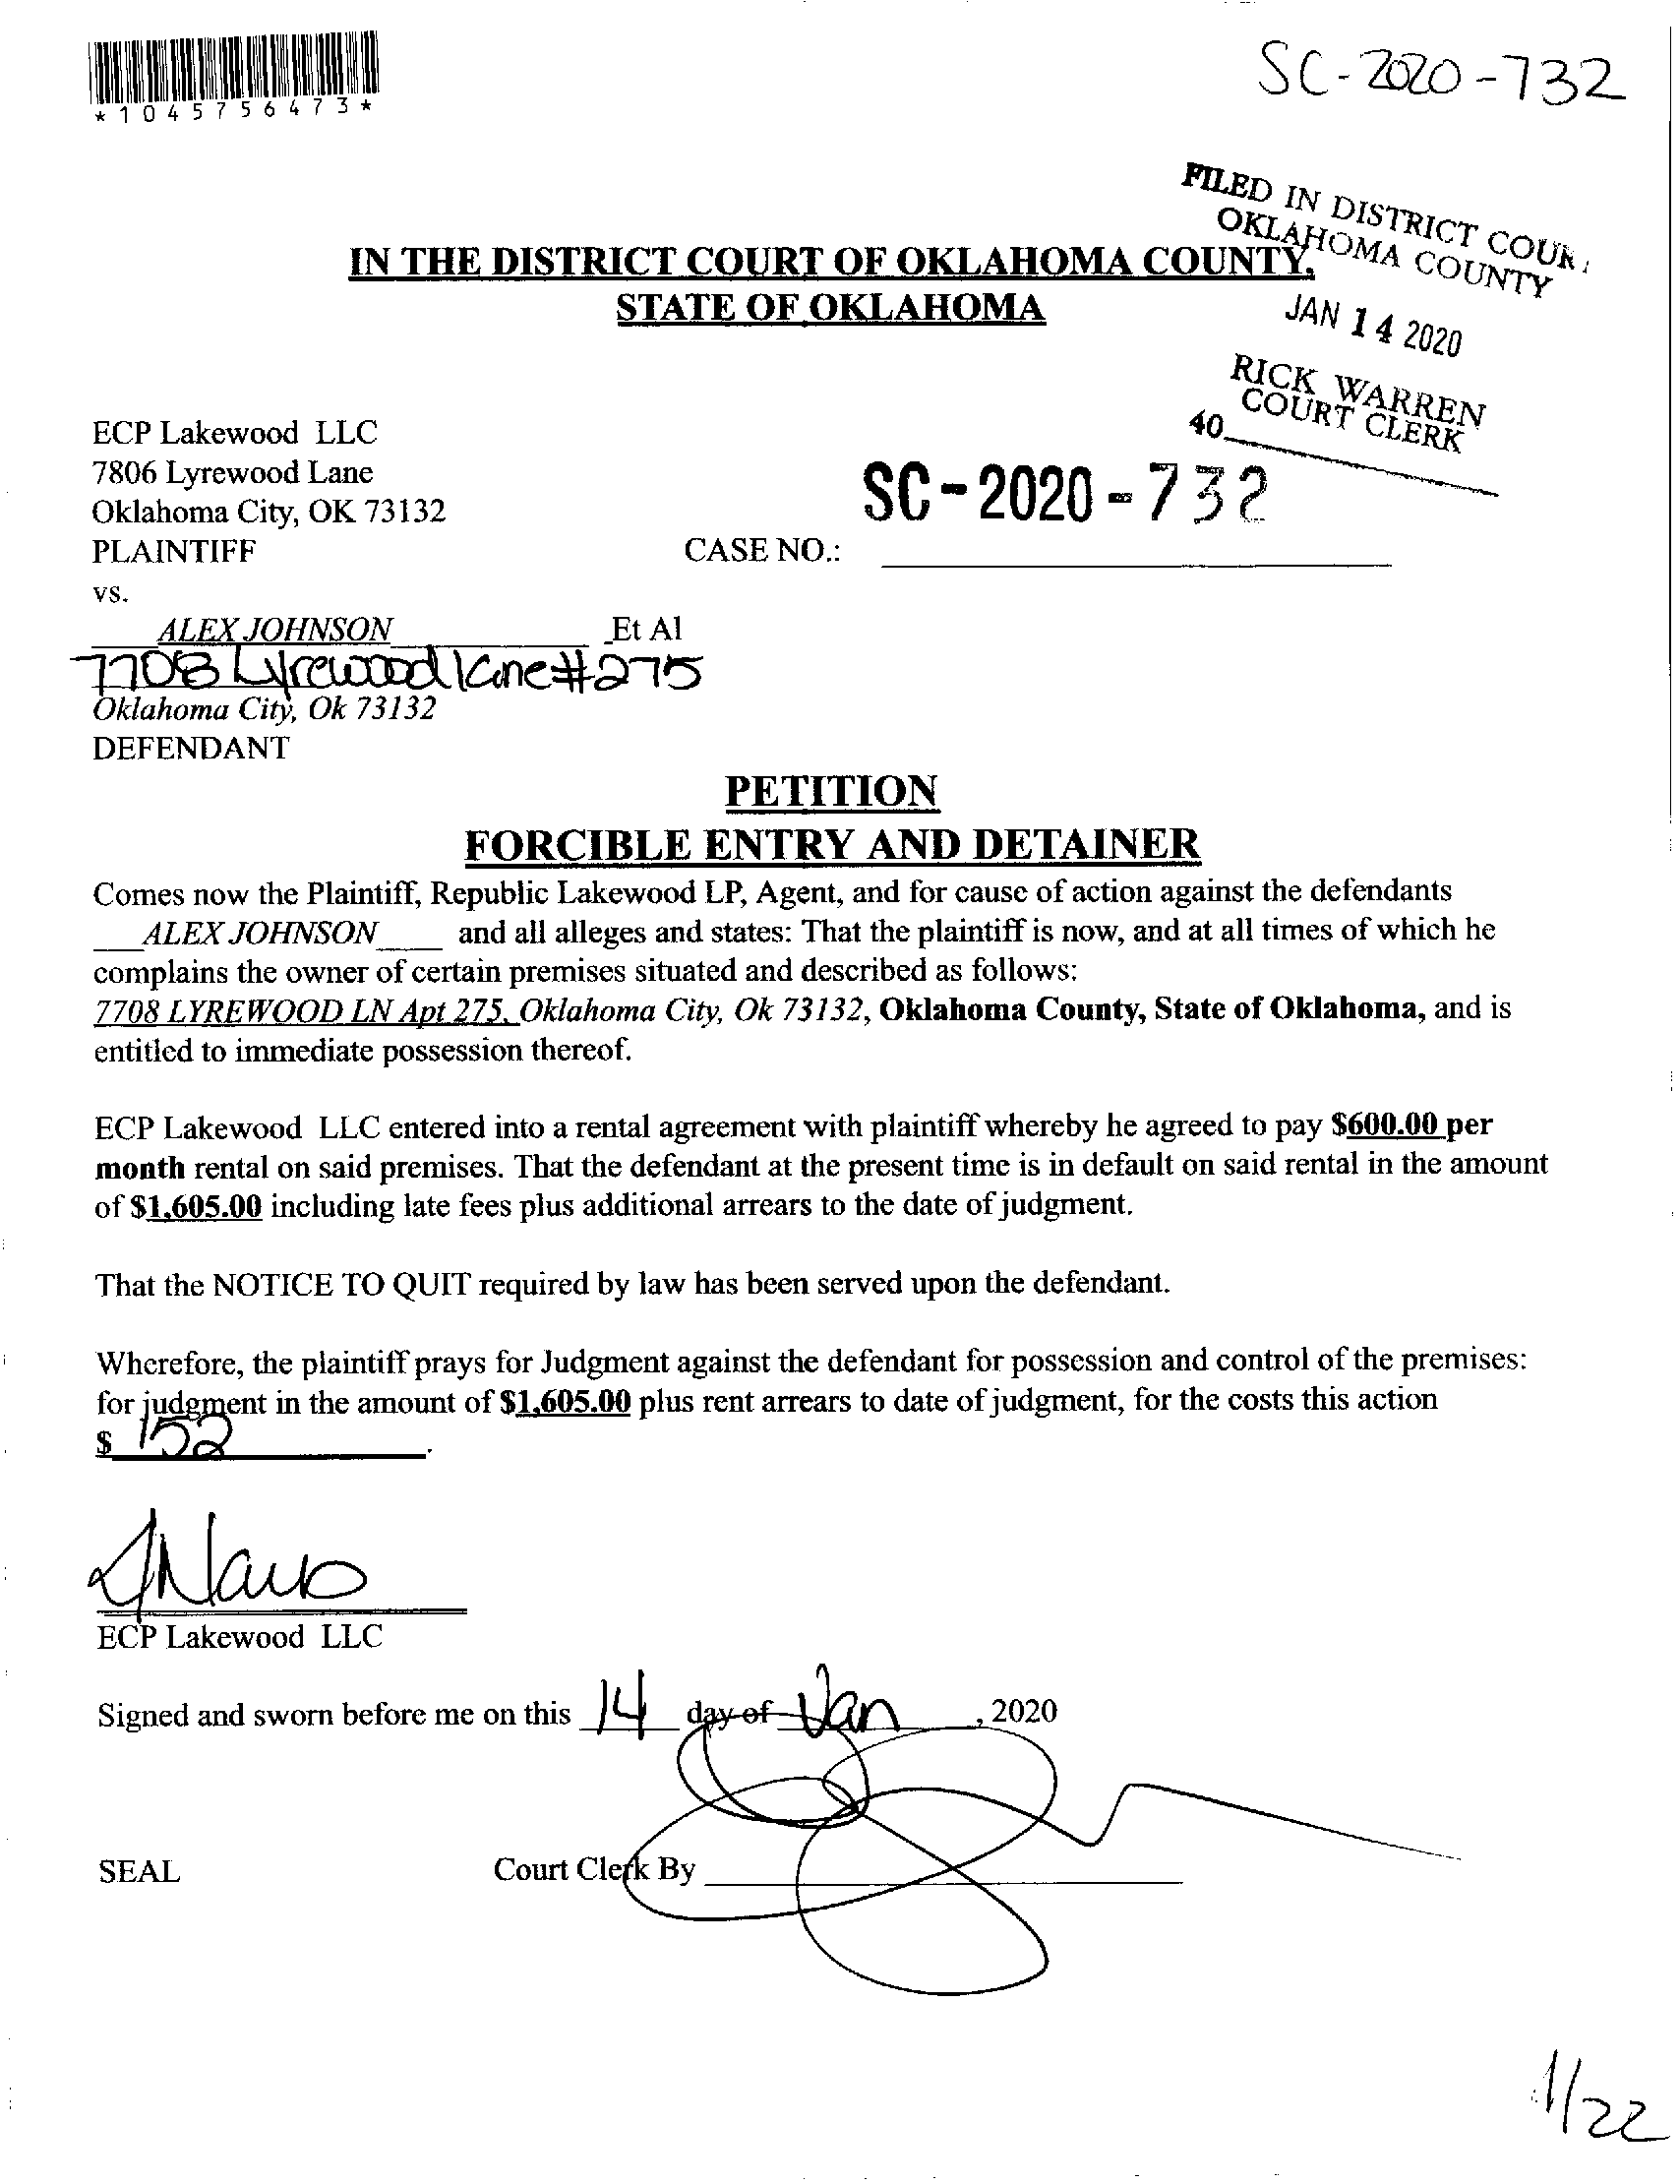 *1045756473*
SC-2020-732
FILED IN DISTRICT COUR
OKLAHOMA COUNTY
JAN 14 2020
RICK WARREN
COURT CLERK
40
IN THE DISTRICT COURT OF OKLAHOMA COUNTY,
STATE OF OKLAHOMA
ECP Lakewood LLC
7806 Lyrewood Lane
Oklahoma City, OK 73132
PLAINTIFF
SC-2020-732
CASE NO.:
vs.
ALEX JOHNSON Et Al
7708 Lyrewood lane #275
Oklahoma City, Ok 73132
DEFENDANT
PETITION
FORCIBLE ENTRY AND DETAINER
Comes now the Plaintiff, Republic Lakewood LP, Agent, and for cause of action against the defendants
ALEX JOHNSON and all alleges and states: That the plaintiff is now, and at all times of which he
complains the owner of certain premises situated and described as follows:
7708 LYREWOOD LN Apt 275, Oklahoma City, Ok 73132, Oklahoma County, State of Oklahoma, and is
entitled to immediate possession thereof.
ECP Lakewood LLC entered into a rental agreement with plaintiff whereby he agreed to pay $600.00 per
month rental on said premises. That the defendant at the present time is in default on said rental in the amount
of $1,605.00 including late fees plus additional arrears to the date of judgment.
That the NOTICE TO QUIT required by law has been served upon the defendant.
Wherefore, the plaintiff prays for Judgment against the defendant for possession and control of the premises:
for judgment in the amount of $1,605.00 plus rent arrears to date of judgment, for the costs this action
$ 152.
ECP Lakewood LLC
Signed and sworn before me on this 14 day of Jan, 2020
SEAL
Court Clerk By
1/22